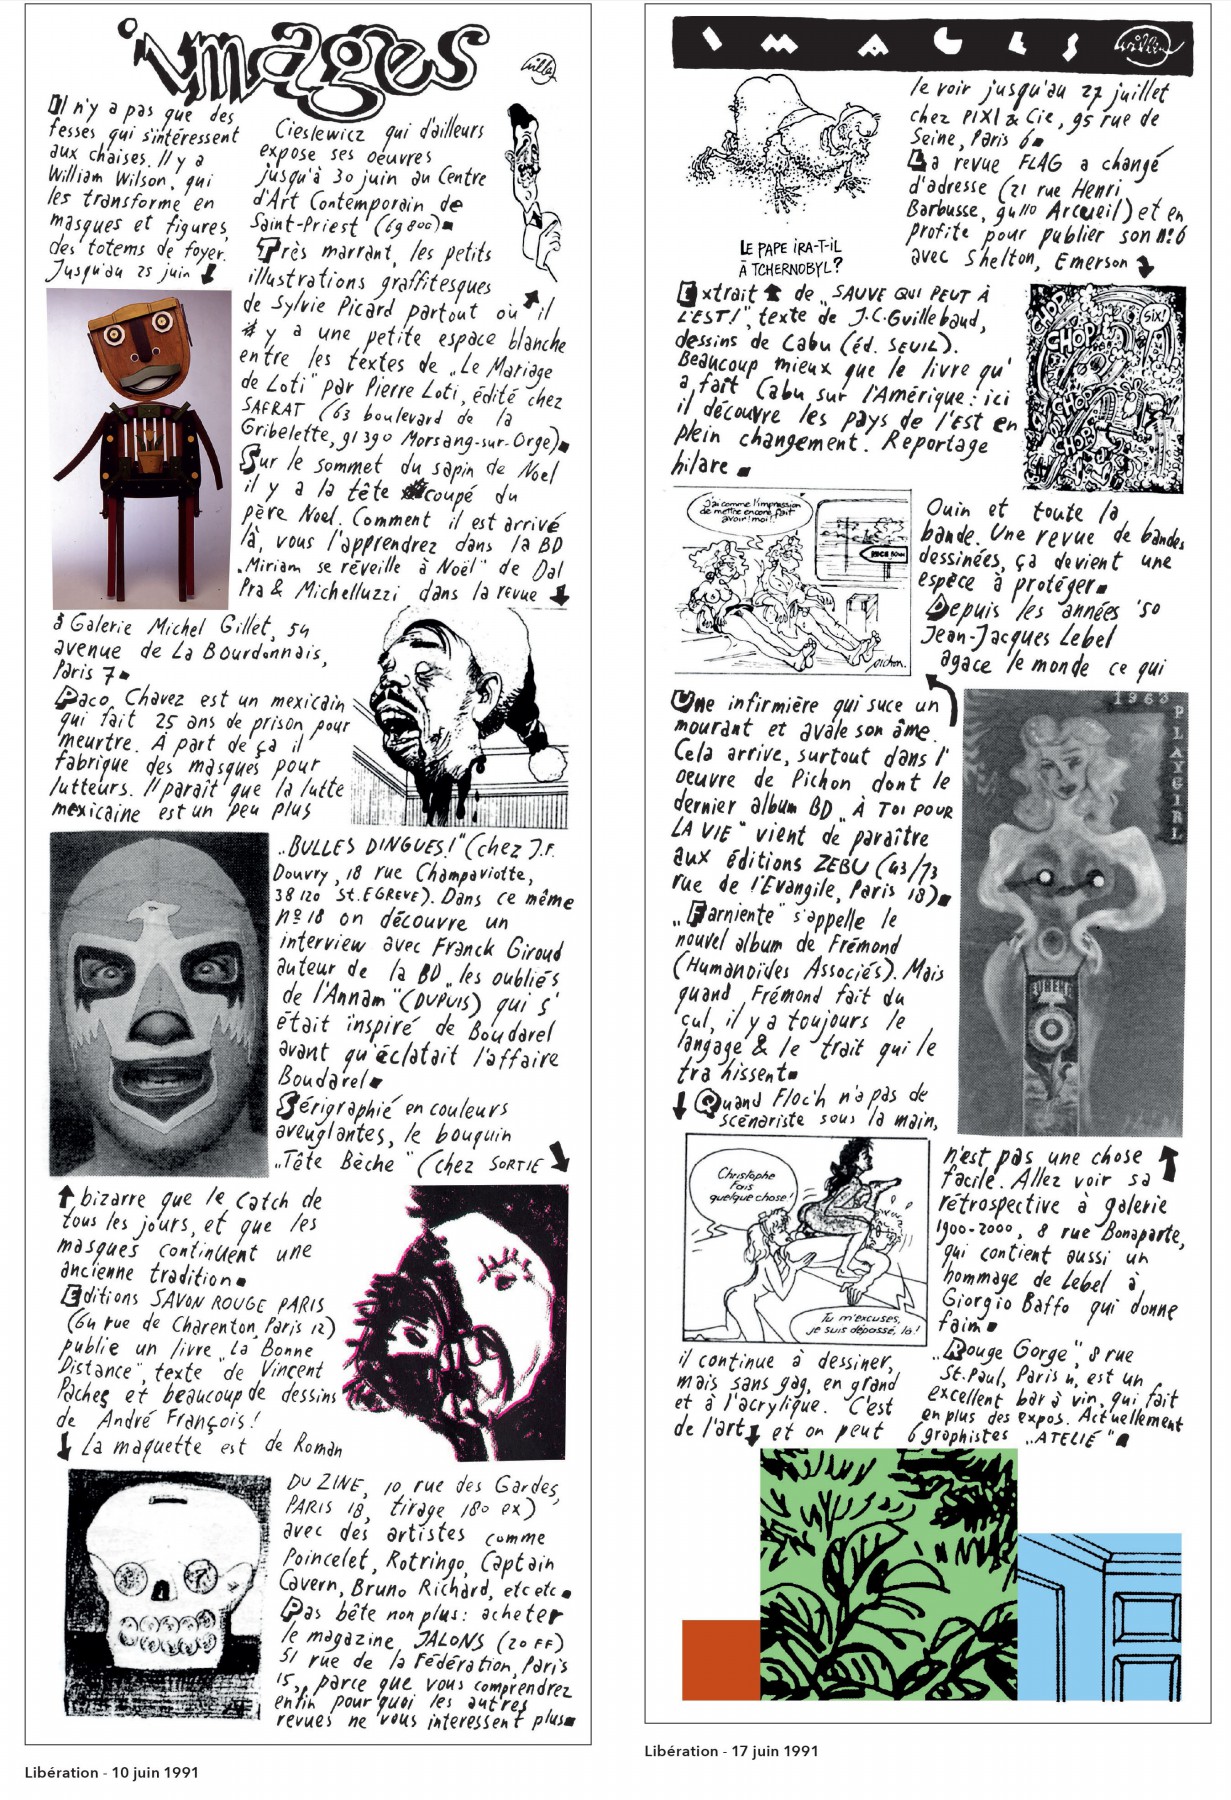 images
Willem
Il n'y a pas que des
fesses qui s'intéressent
aux chaises. Il y a
William Wilson, qui
les transforme en
masques et figures,
des totems de foyer.
Jusqu'au 25 juin
à Galerie Michel Gillet, 54
avenue de La Bourdonnais,
Paris 7
Paco Chavez est un mexicain
qui fait 25 ans de prison pour
meurtre. A part de ça il
fabrique des masques pour
lutteurs. Il paraît que la lutte
mexicaine est un peu plus
bizarre que le catch de
tous les jours, et que les
masques continuent une
ancienne tradition
Editions SAVON ROUGE PARIS
(64 rue de Charenton, Paris 12)
publie un livre „La Bonne
Distance", texte de Vincent
Pachès et beaucoup de dessins
de André François!
La maquette est de Roman
Cieslewicz qui d'ailleurs
expose ses oeuvres
jusqu'à 30 juin au Centre
d'Art Contemporain de
Saint-Priest (69800)
Très marrant, les petits
illustrations graffitesques
de Sylvie Picard partout où il
y a une petite espace blanche
entre les textes de „Le Mariage
de Loti" par Pierre Loti, édité chez
SAFRAT (63 boulevard de la
Gribelette, 91390 Morsang-sur-Orge)
Sur le sommet du sapin de Noel
il y a la tête coupé du
père Noel. Comment il est arrivé
là, vous l'apprendrez dans la BD
„Miriam se réveille à Noël" de Dal
Pra & Michelluzzi dans la revue
„BULLES DINGUES!" (chez J.F.
Douvry, 18 rue Champaviotte,
38120 St. EGREVE). Dans ce même
nº 18 on découvre un
interview avec Franck Giroud
auteur de la BD „les oubliés
de l'Annam" (DUPUIS) qui s'
était inspiré de Boudarel
avant qu'éclatait l'affaire
Boudarel
Sérigraphié en couleurs
aveuglantes, le bouquin
„Tête Bèche" (chez SORTIE
DU ZINE, 10 rue des Gardes,
PARIS 18, tirage 180 ex)
avec des artistes comme
Poincelet, Rotringo, Captain
Cavern, Bruno Richard, etc etc
Pas bête non plus: acheter
le magazine JALONS (20 FF)
51 rue de la Fédération, Paris
15, parce que vous comprendrez
enfin pourquoi les autres
revues ne vous interessent plus
Libération - 10 juin 1991
IMAGES
Willem
LE PAPE IRA-T-IL
À TCHERNOBYL?
Extrait de „SAUVE QUI PEUT À
L'EST!", texte de J.C. Guillebaud,
dessins de Cabu (éd. SEUIL).
Beaucoup mieux que le livre qu'
a fait Cabu sur l'Amérique: ici
il découvre les pays de l'Est en
plein changement. Reportage
hilare
J'ai comme l'impression
de m'être encore fait
avoir! moi!
pichon.
Une infirmière qui suce un
mourant et avale son âme.
Cela arrive, surtout dans l'
oeuvre de Pichon dont le
dernier album BD „À TOI POUR
LA VIE" vient de paraître
aux éditions ZEBU (43/73
rue de l'Evangile, Paris 18)
„Farniente" s'appelle le
nouvel album de Frémond
(Humanoïdes Associés). Mais
quand Frémond fait du
cul, il y a toujours le
langage & le trait qui le
trahissent
Quand Floc'h n'a pas de
scénariste sous la main,
Christophe
fais
quelque chose!
Tu m'excuses,
je suis dépassé, là!
il continue à dessiner,
mais sans gag, en grand
et à l'acrylique. C'est
de l'art, et on peut
le voir jusqu'au 27 juillet
chez PIXI & Cie, 95 rue de
Seine, Paris 6
La revue FLAG a changé
d'adresse (21 rue Henri
Barbusse, 94110 Arcueil) et en
profite pour publier son nº 6
avec Shelton, Emerson
CHOP
CHOP
CHOP
CHOP
SIX!
Ouin et toute la
bande. Une revue de bandes
dessinées, ça devient une
espèce à protéger
Depuis les années '50
Jean-Jacques Lebel
agace le monde ce qui
1963
PLAYGIRL
n'est pas une chose
facile. Allez voir sa
rétrospective à galerie
1900-2000, 8 rue Bonaparte,
qui contient aussi un
hommage de Lebel à
Giorgio Baffo qui donne
faim
„Rouge Gorge", 8 rue
St. Paul, Paris 4, est un
excellent bar à vin, qui fait
en plus des expos. Actuellement
6 graphistes „ATELIÉ"
Libération - 17 juin 1991